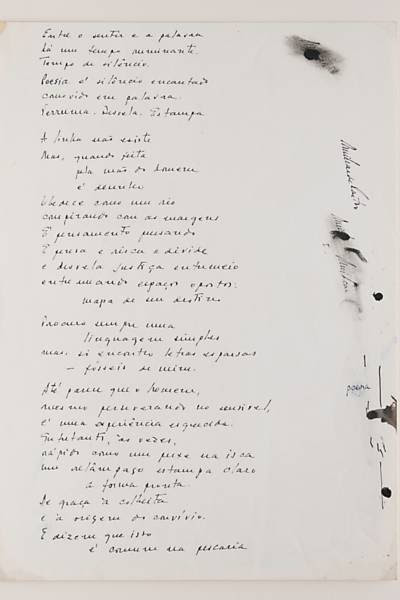 Entre o sentir e a palavra
há um tempo ruminante.
Tempo de silêncio.
Poesia é silêncio encantado
convido em palavra.
Verruma. Desvela. Estampa
A linha não existe
Mas, quando feita
pela mão do homem
é desenho
Obedece como um rio
conspirando com as margens
É pensamento pensando
É presa e risca e divide
e desvela justiça entremeio
entremeando espaços opostos:
mapa de seu destino
Procuro sempre uma
linguagem simples
mas, só encontro letras esparsas
– fósseis de mim.
Até parece que o homem,
mesmo perseverando no sensível,
é uma experiência esquecida.
Entretanto, às vezes,
rápido como um peixe na isca
um relâmpago estampa claro
a forma pronta.
De graça à colheita
e à origem do convívio.
E dizem que isto
é comum na pescaria
poesia